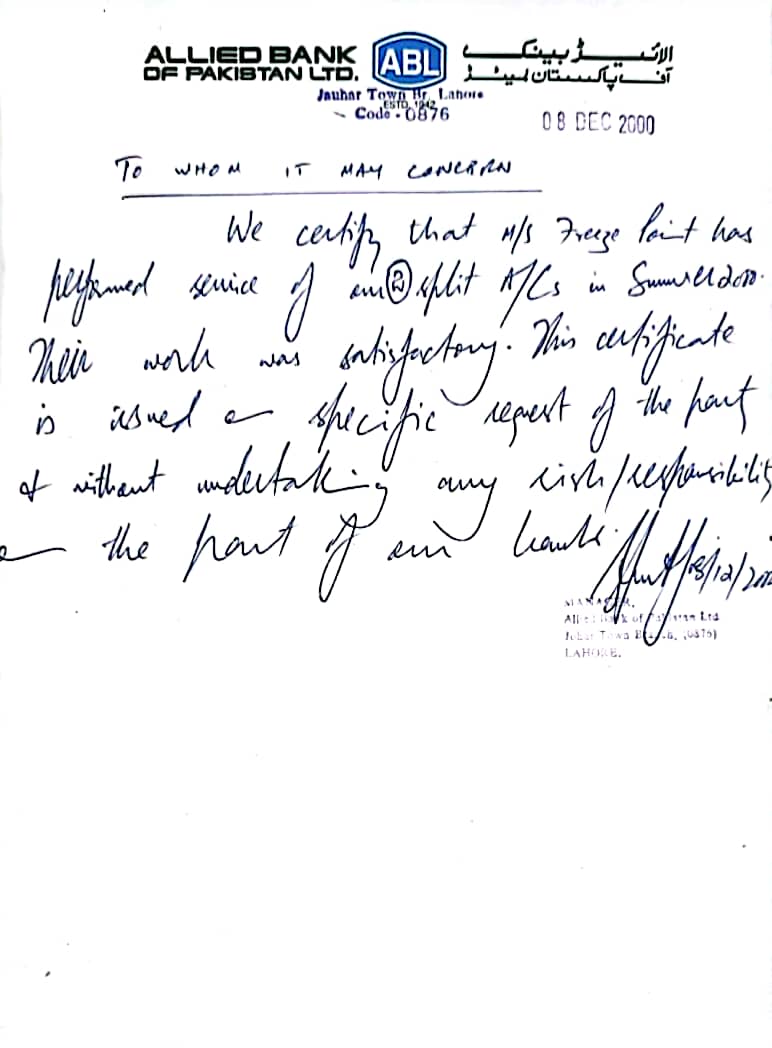 ALLIED BANK
OF PAKISTAN LTD.
ABL
ESTD. 1942
الائیڈ بینک
آف پاکستان لمیٹڈ
Jauhar Town Br. Lahore
Code - 0876
08 DEC 2000
TO WHOM IT MAY CONCERN
We certify that M/S Freeze Point has
performed service of our ② split A/Cs in Summer 2000.
Their work was satisfactory. This certificate
is issued on specific request of the party
& without undertaking any risk/responsibility
on the part of our bank.
08/12/2000
MANAGER,
Allied Bank of Pakistan Ltd
Johar Town Branch, (0876)
LAHORE.